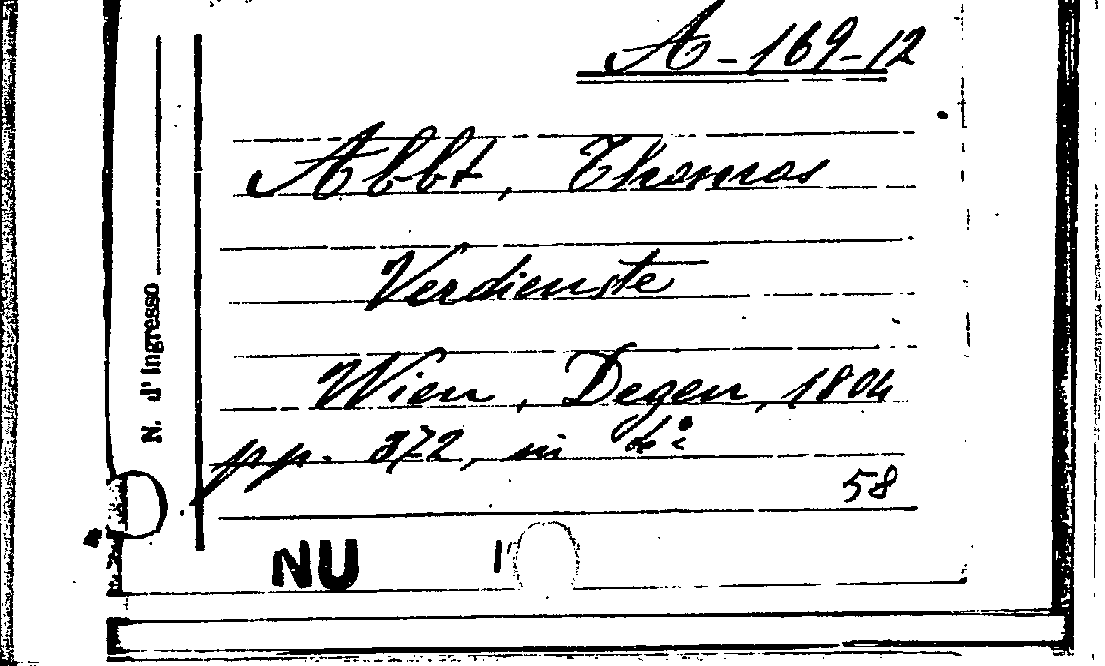 A-169-12
Abbt, Thomas
Verdienste
Wien, Degen, 1804
pp. 372, in 4°
58
N. d'Ingresso
NU